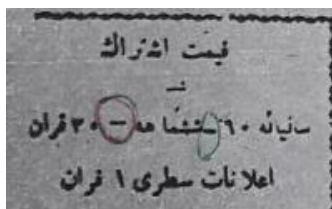 قیمت اشتراك
سالیانه ۶۰ ششماهه — ۳۰ قران
اعلانات سطری ۱ قران